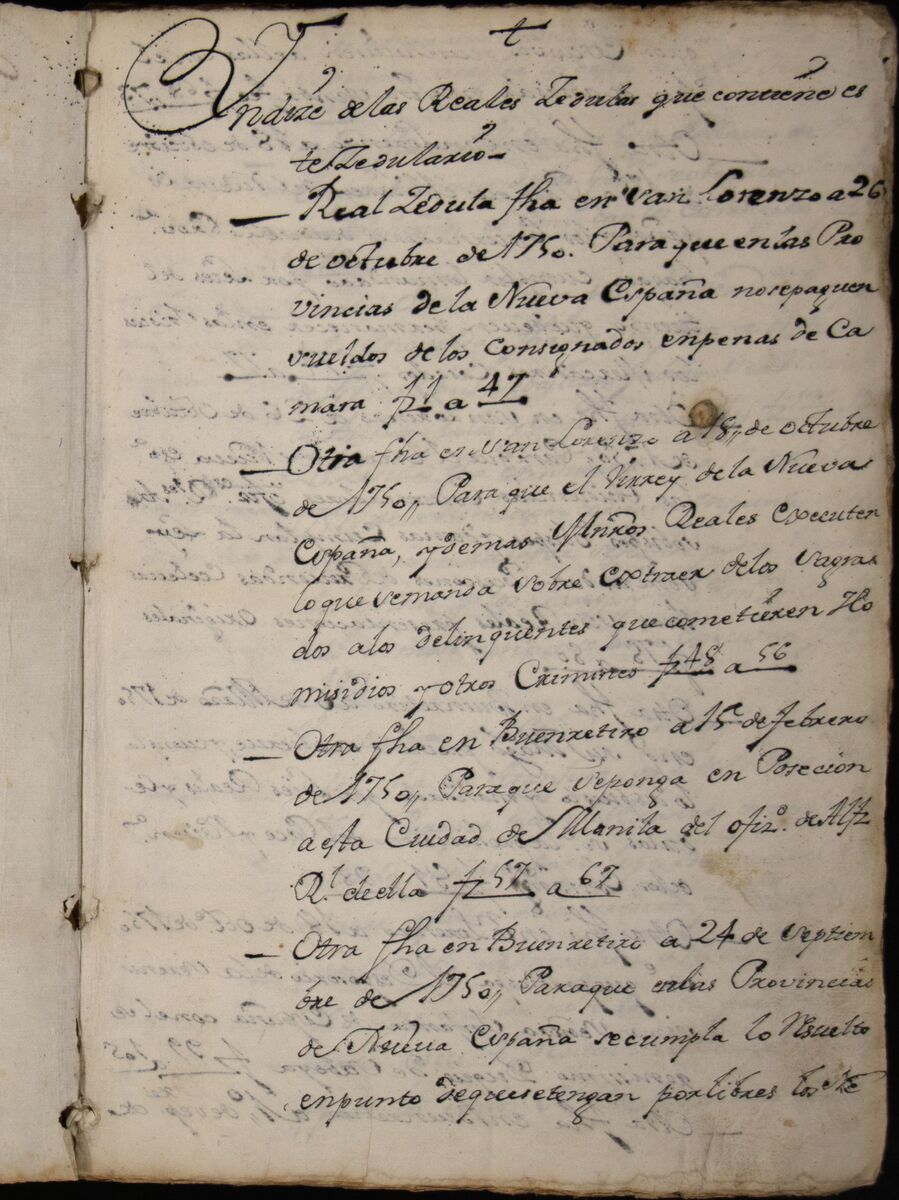 +
Yndize de las Reales Zedulas que contiene es
te Zedulario
Real Zedula fha en San Lorenzo a 26
de octubre de 1750. Para que en las Pro
vincias de la Nueva España no se paguen
sueldos de los consignados en penas de Ca
mara f 11 a 47
Otra fha en San Lorenzo a 18,, de octubre
de 1750,, Para que el Virrey de la Nueva
España, y demas Minros Reales executen
lo que se manda sobre extraer de los sagra
dos a los delinquentes que cometieren Ho
misidios y otros Crimines f 48 a 56
Otra fha en Buenretiro a 15 de febrero
de 1750,, Para que se ponga en Posecion
a esta Ciudad de Manila del ofizo. de Alfz
Rl. de ella f 57 a 67
Otra fha en Buenretiro a 24 de septiem
bre de 1750,, Para que en las Provincias
de Nueva España se cumpla lo Resuelto
en punto de que se tengan por libres los Ne